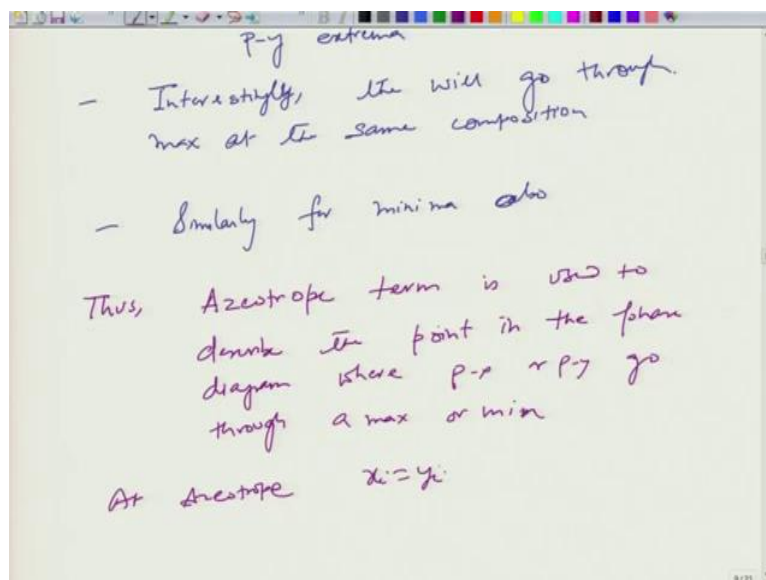 P-y extrema
- Interestingly, the will go through
max at the same composition
- Similarly for minima also
Thus, Azeotrope term is used to
describe the point in the phase
diagram where P-x r P-y go
through a max or min
At Azeotrope xi = yi